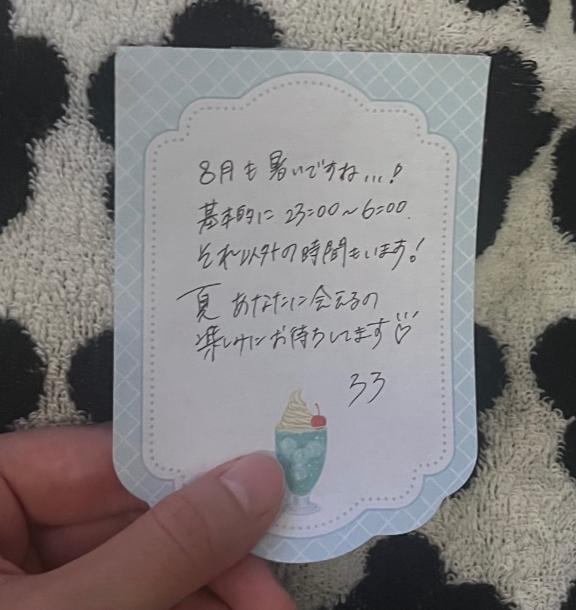 8月も暑いですね...!
基本的に 23:00〜6:00.
それ以外の時間もいます!
夏 あなたに会えるの
楽しみにお待ちしてます♡
ろろ